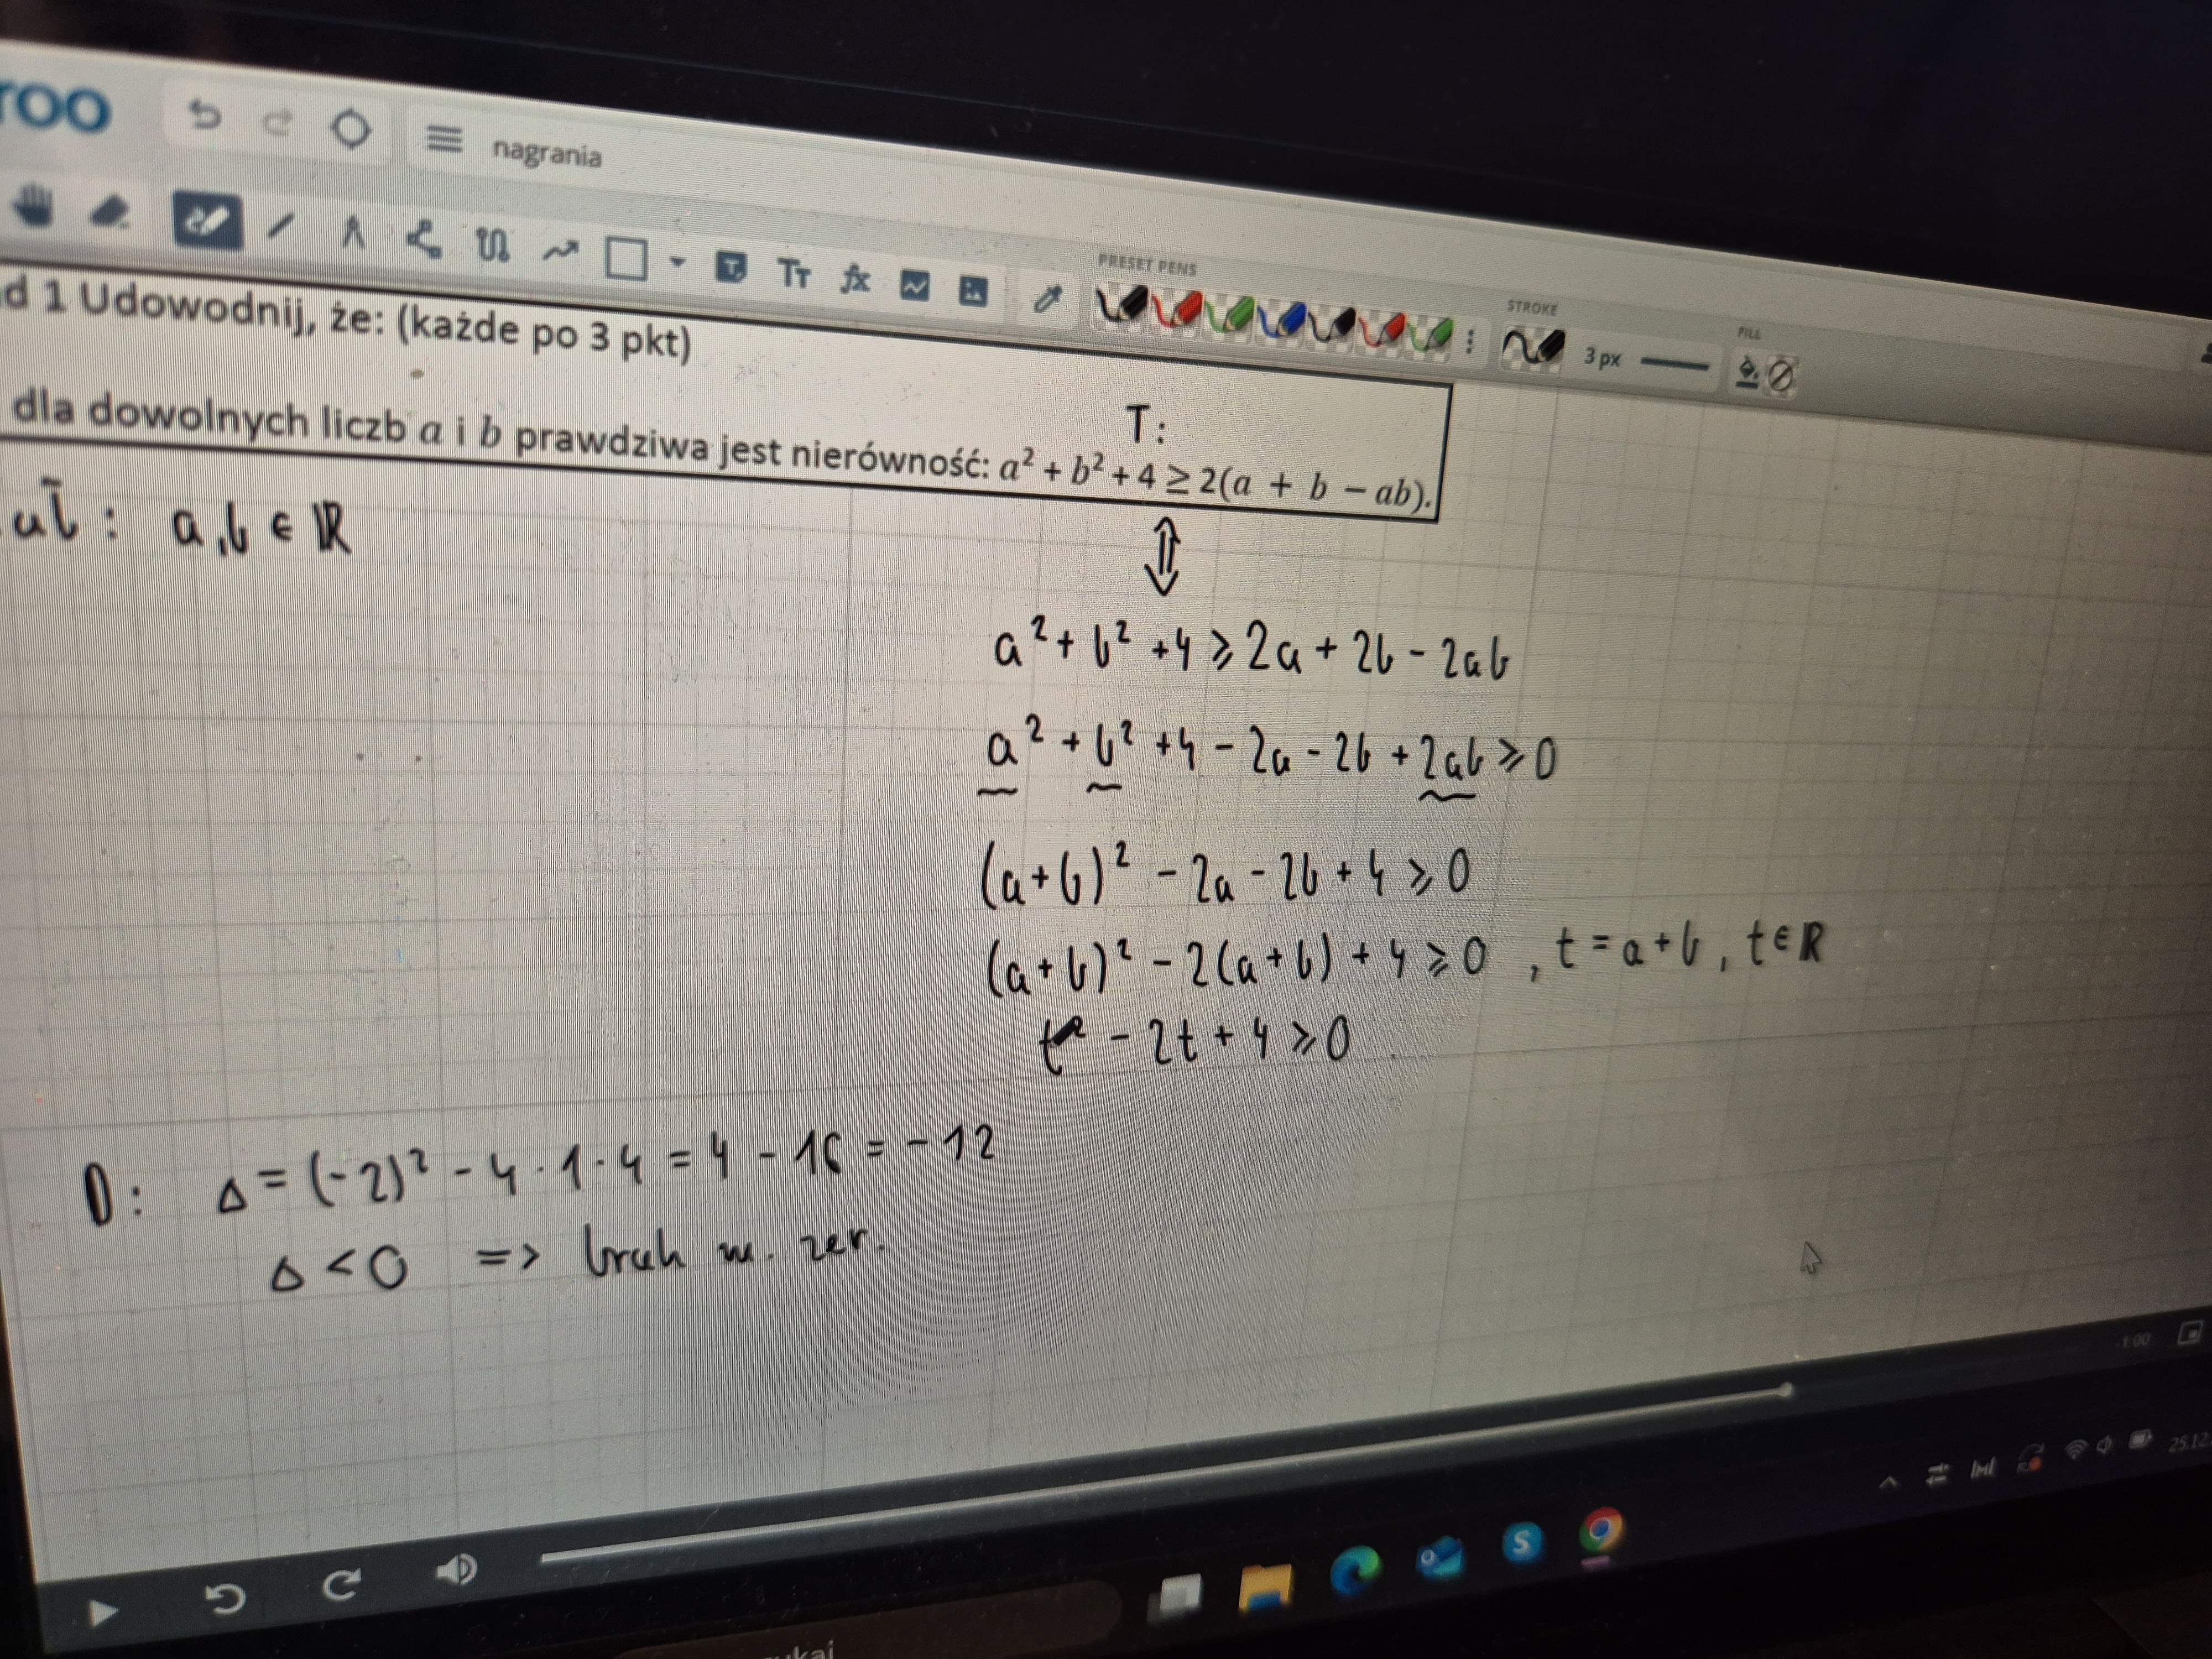 roo
nagrania
PRESET PENS
STROKE
3 px
FILL
d 1 Udowodnij, że: (każde po 3 pkt)
T:
dla dowolnych liczb a i b prawdziwa jest nierówność: a² + b² + 4 ≥ 2(a + b − ab).
: a, b ∈ ℝ
⇕
a² + b² + 4 ⩾ 2a + 2b - 2ab
a² + b² + 4 - 2a - 2b + 2ab ⩾ 0
(a+b)² - 2a - 2b + 4 ⩾ 0
(a+b)² - 2(a+b) + 4 ⩾ 0 , t = a+b , t ∈ ℝ
t² - 2t + 4 ⩾ 0
D: Δ = (-2)² - 4 · 1 · 4 = 4 - 16 = -12
Δ < 0 => brak m. zer.
-1:00
25.12
ukaj